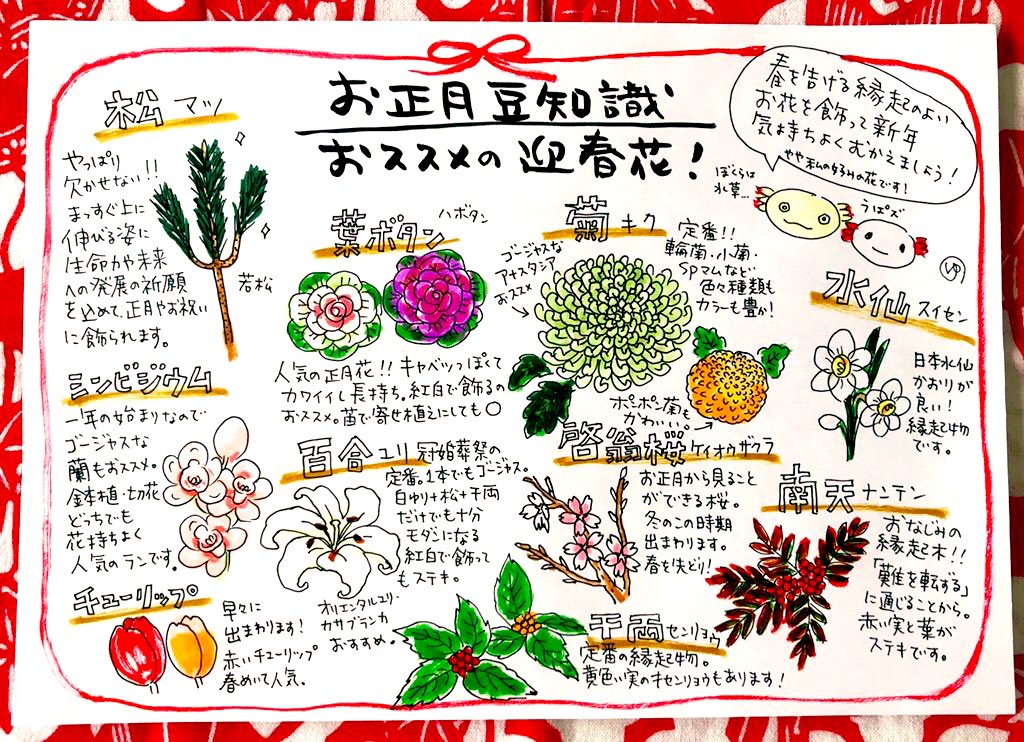 お正月豆知識
おススメの迎春花!
春を告げる縁起のよい
お花を飾って新年
気持ちよくむかえましょう!
やや私の好みの花です!
ぼくらは
水草…
うぱズ
松 マツ
やっぱり
欠かせない!!
まっすぐ上に
伸びる姿に
生命力や未来
への発展の祈願
を込めて、正月やお祝い
に飾られます。
若松
葉ボタン ハボタン
人気の正月花!! キャベツっぽくて
カワイイし長持ち。紅白で飾るの
おススメ。苗で寄せ植えにしても〇
菊 キク
ゴージャスな
アナスタシア
おススメ
定番!!
輪菊・小菊・
SPマムなど
色々種類も
カラーも豊か!
ポンポン菊も
かわいい。
水仙 スイセン
日本水仙
かおりが
良い!
縁起物
です。
シンビジウム
一年の始まりなので
ゴージャスな
蘭もおススメ。
鉢植・切花
どっちでも
花持ちよく
人気のランです。
百合 ユリ
冠婚葬祭の
定番。1本でもゴージャス。
白ゆり+松+千両
だけでも十分
モダンになる
紅白で飾って
もステキ。
オリエンタルユリ・
カサブランカ
おすすめ。
啓翁桜 ケイオウザクラ
お正月から見ること
ができる桜。
冬のこの時期
出まわります。
春を先どり!
南天 ナンテン
おなじみの
縁起木!!
「難を転ずる」
に通じることから。
赤い実と葉が
ステキです。
チューリップ
早々に
出まわります!
赤いチューリップ
春めいて人気。
千両 センリョウ
定番の縁起物。
黄色い実のキセンリョウもあります!